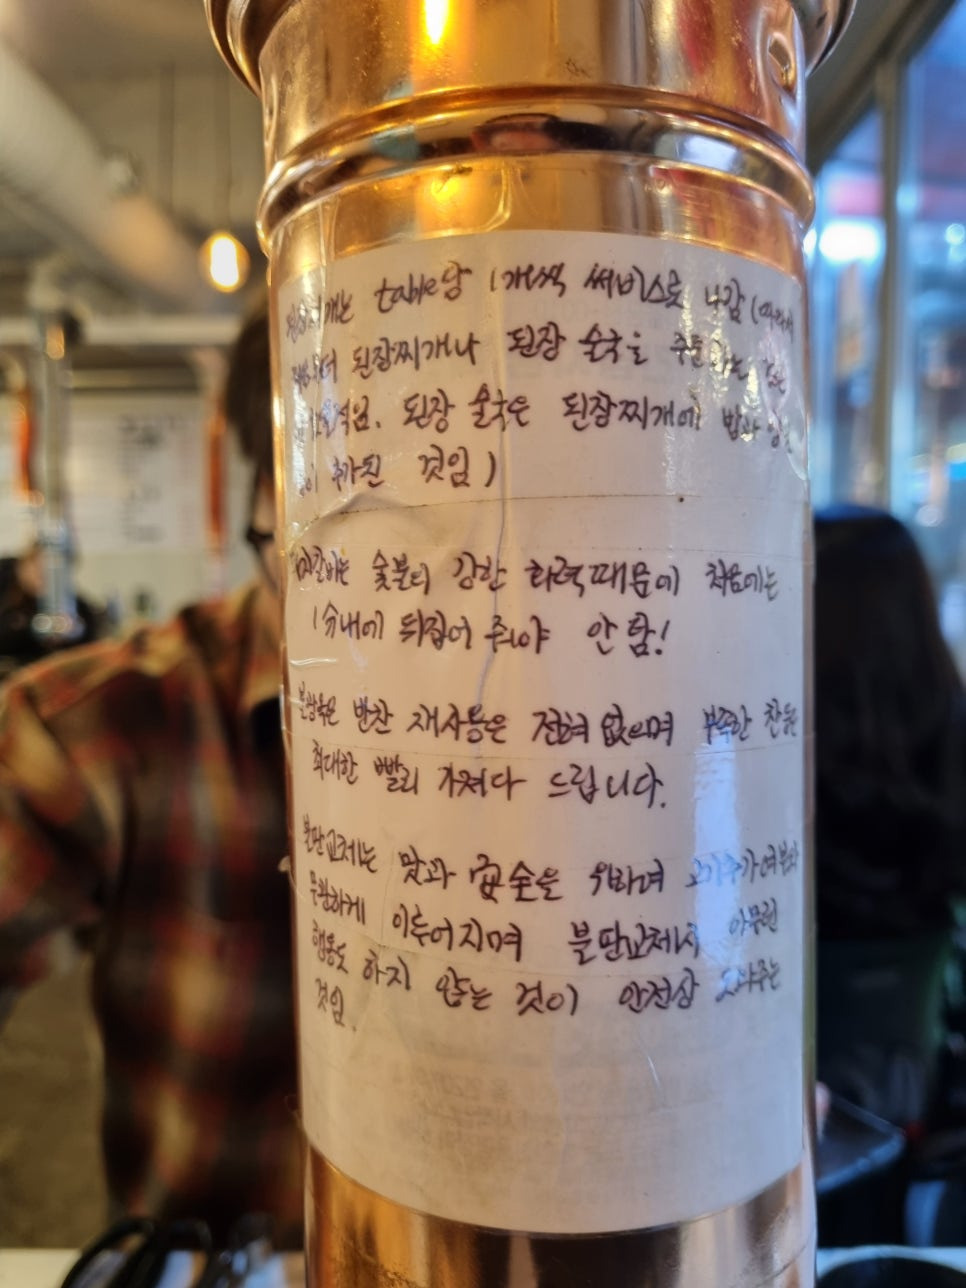 된장찌개는 table당 1개씩 써비스로 나감 (따라서
된장찌개나 된장 술국을 주문하는 것은
된장 술국은 된장찌개에 밥과
이 추가된 것임)
숯불의 강한 화력때문에 처음에는
1分내에 뒤집어 주야 안탐!
본업소는 반찬 재사용은 전혀 없으며 부족한 찬등은
최대한 빨리 가져다 드립니다.
불판교체는 맛과 安全을 위하여 고기추가여부와
무관하게 이루어지며 불판교체시 아무런
행동도 하지 않는 것이 안전상 도와주는
것임.